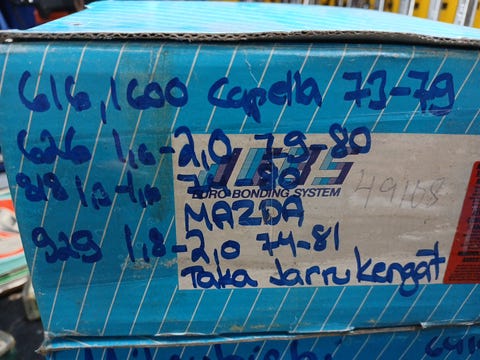 616, 1600 Capella 73-79
626 1,6-2,0 79-80
818 1,3-1,6
EURO-BONDING SYSTEM
49108
MAZDA
929 1,8-2,0 74-81
Taka Jarrukengät